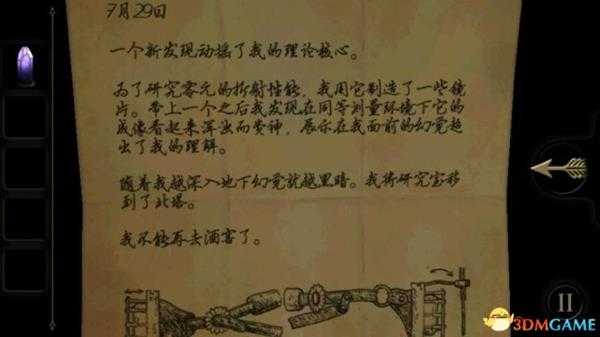 7月29日
一个新发现动摇了我的理论核心。
为了研究零元的折射性能，我用它制造了一些镜
片。带上一个之后我发现在同等测量环境下它的
成像看起来浑浊而变神，展示在我面前的幻觉超
出了我的理解。
随着我越深入地下幻觉就越黑暗。我将研究室移
到了北塔。
我不能再去酒窖了。
3DMGAME